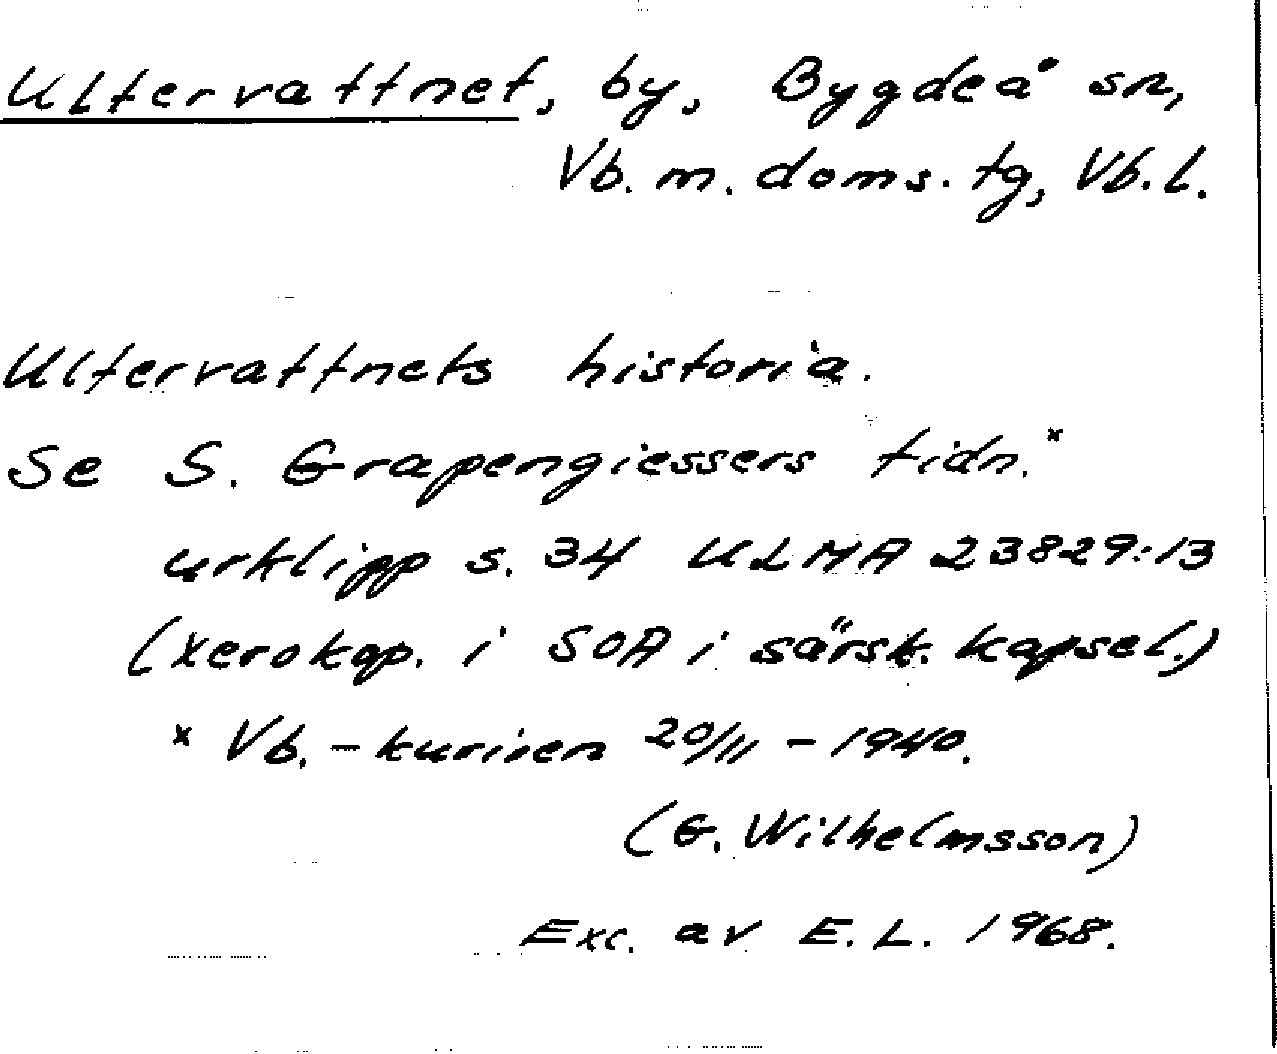 Ultervattnet, by, Bygdeå sn,
Vb. m. doms. tg, Vb. l.
Ultervattnets historia.
Se S. Grapengiessers tidn.x
urklipp s. 34 ULMA 23829:13
(xerokop. i SOA i särsk. kapsel.)
x Vb.-kuriren 20/11 - 1940.
(G. Wilhelmsson)
Exc. av E. L. 1968.